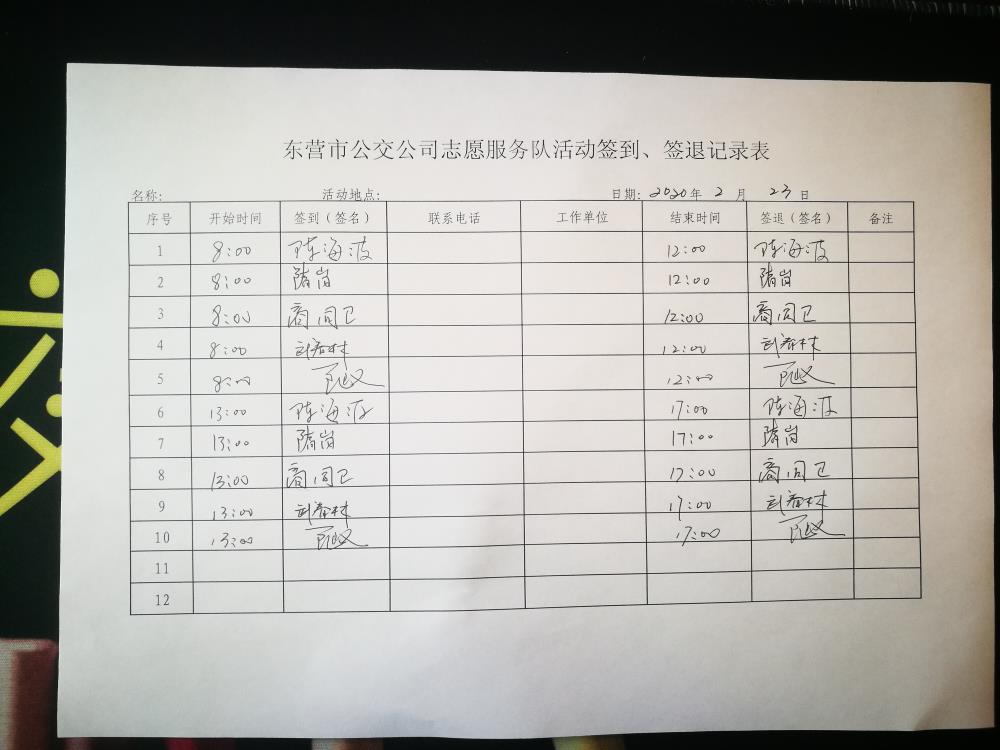 东营市公交公司志愿服务队活动签到、签退记录表
名称: 活动地点: 日期: 2020年 2 月 23 日
序号 开始时间 签到（签名） 联系电话 工作单位 结束时间 签退（签名） 备注
1 8:00 陈海波 12:00 陈海波
2 8:00 隋岗 12:00 隋岗
3 8:00 商同卫 12:00 商同卫
4 8:00 武春林 12:00 武春林
5 8:00 12:00
6 13:00 陈海波 17:00 陈海波
7 13:00 隋岗 17:00 隋岗
8 13:00 商同卫 17:00 商同卫
9 13:00 武春林 17:00 武春林
10 13:00 17:00
11
12